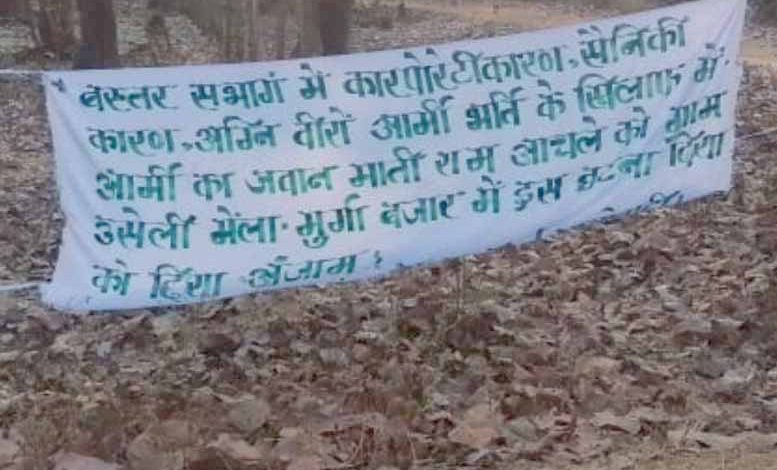 बस्तर सभागं मे कारपोरेटीकारण, सैनिकी
कारण, अग्नि वीरों आर्मी भर्ति के खिलाफ में.
आर्मी का जवान माती राम आचले को ग्राम
उसेली मेला. मुर्गा बजार में इस घटना दिया
को दिया अँजाम: